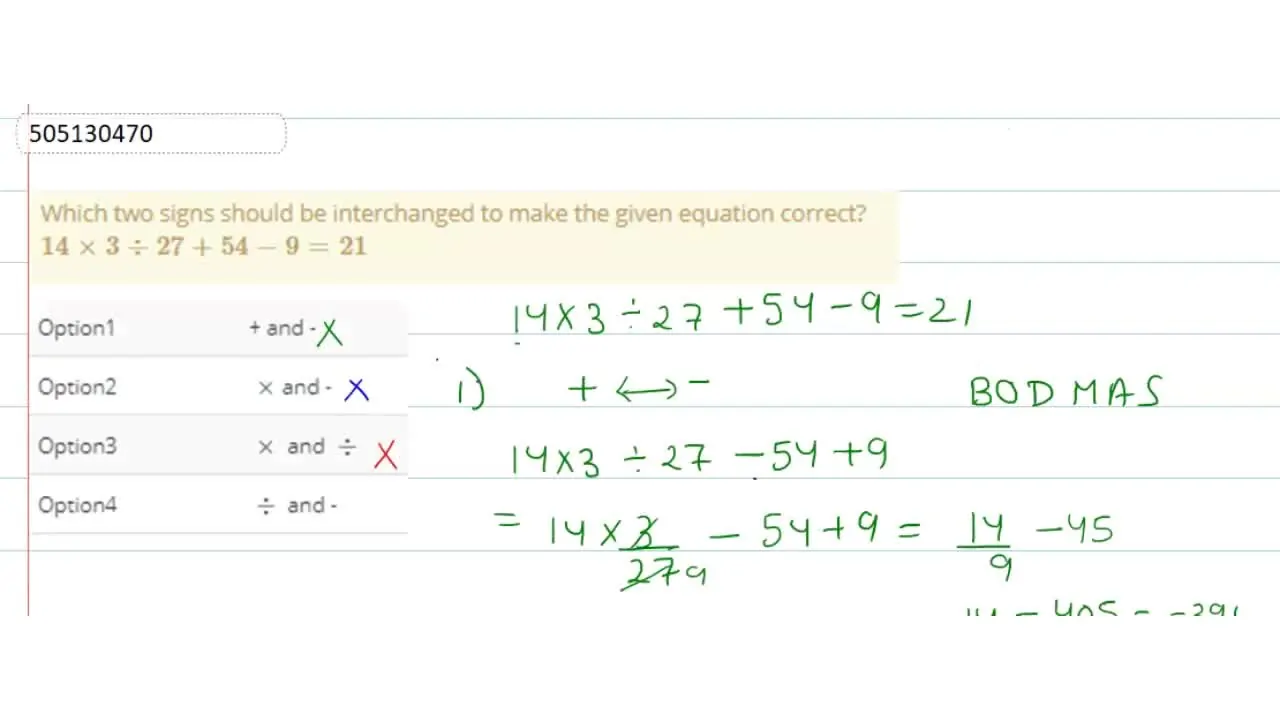 505130470
Which two signs should be interchanged to make the given equation correct?
14 × 3 ÷ 27 + 54 − 9 = 21
Option1 + and - X
Option2 × and - X
Option3 × and ÷ X
Option4 ÷ and -
14 × 3 ÷ 27 + 54 − 9 = 21
1) + ⟷ −
BODMAS
14 × 3 ÷ 27 − 54 + 9
= 14 × 3/27 9 − 54 + 9 = 14/9 − 45